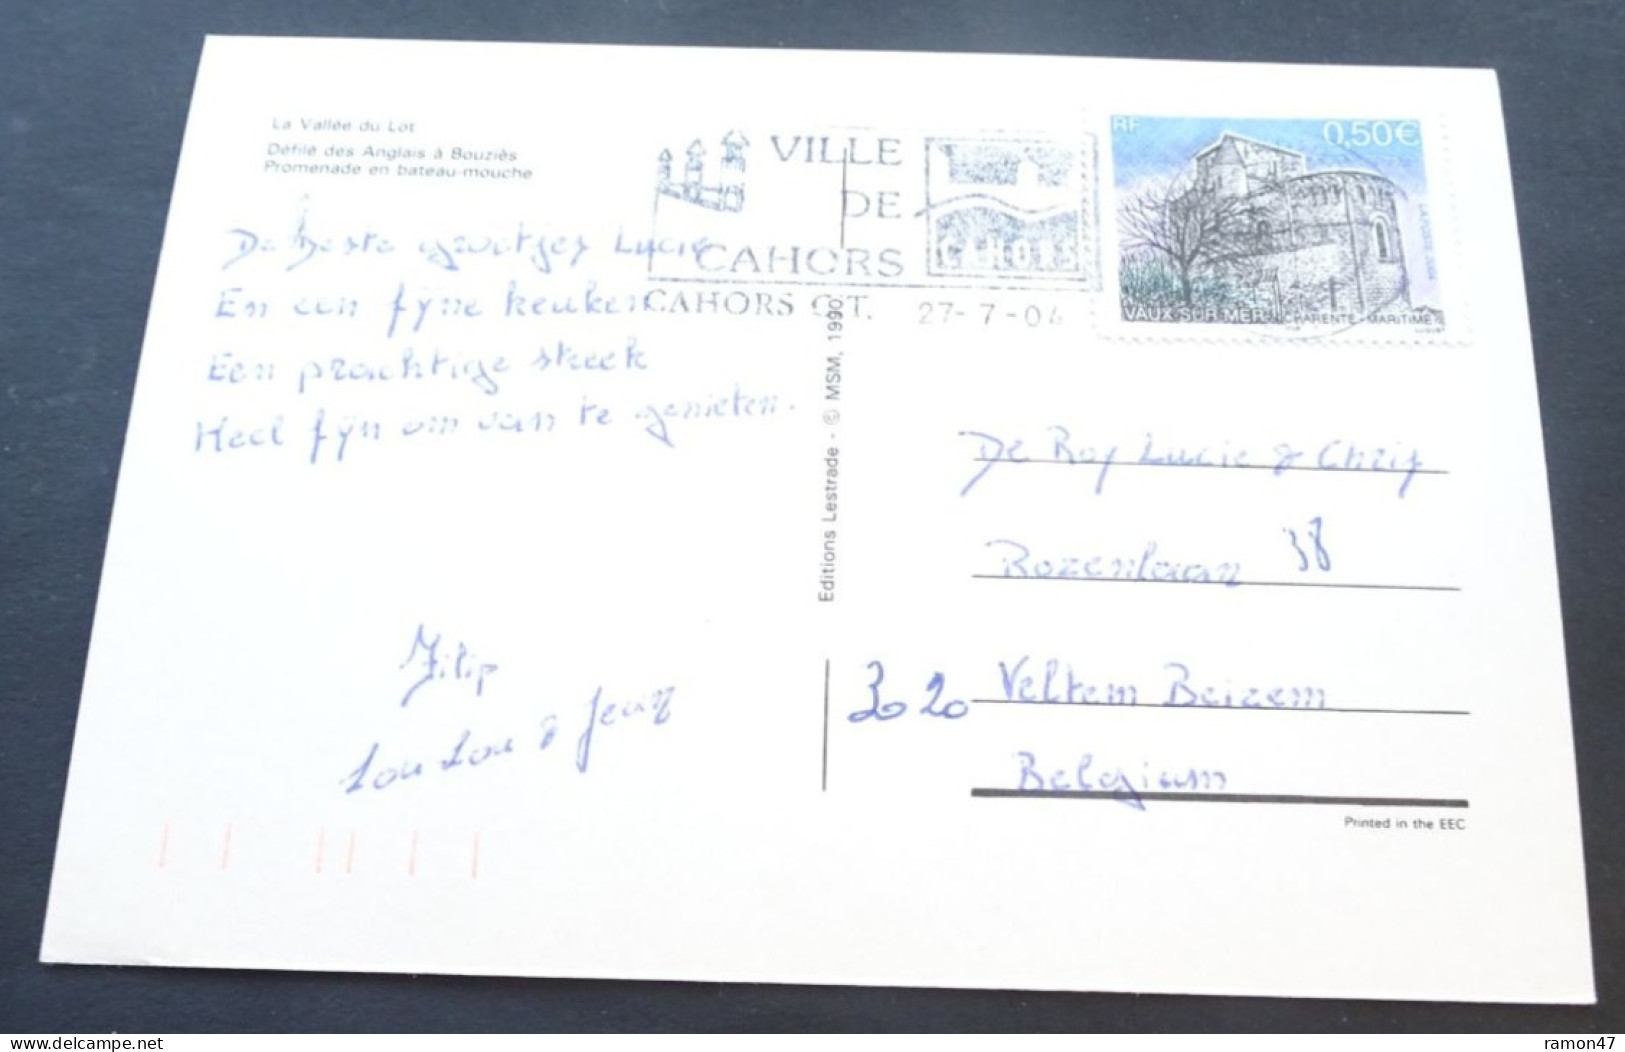 La Vallée du Lot
Défilé des Anglais à Bouziès
Promenade en bateau-mouche
De beste groetjes Lucie
En een fijne keuken
Een prachtige streek
Heel fijn om van te genieten.
Filip
Lou Lou & Jean
VILLE
DE
CAHORS
CAHORS
CAHORS C.T. 27-7-04
RF 0,50€
LA POSTE 2004
VAUX SUR MER CHARENTE-MARITIME
Editions Lestrade - © MSM, 1990.
De Roy Lucie & Chris
Rozenlaan 38
3020 Veltem Beizem
Belgium
Printed in the EEC
delcampe.net
ramon47